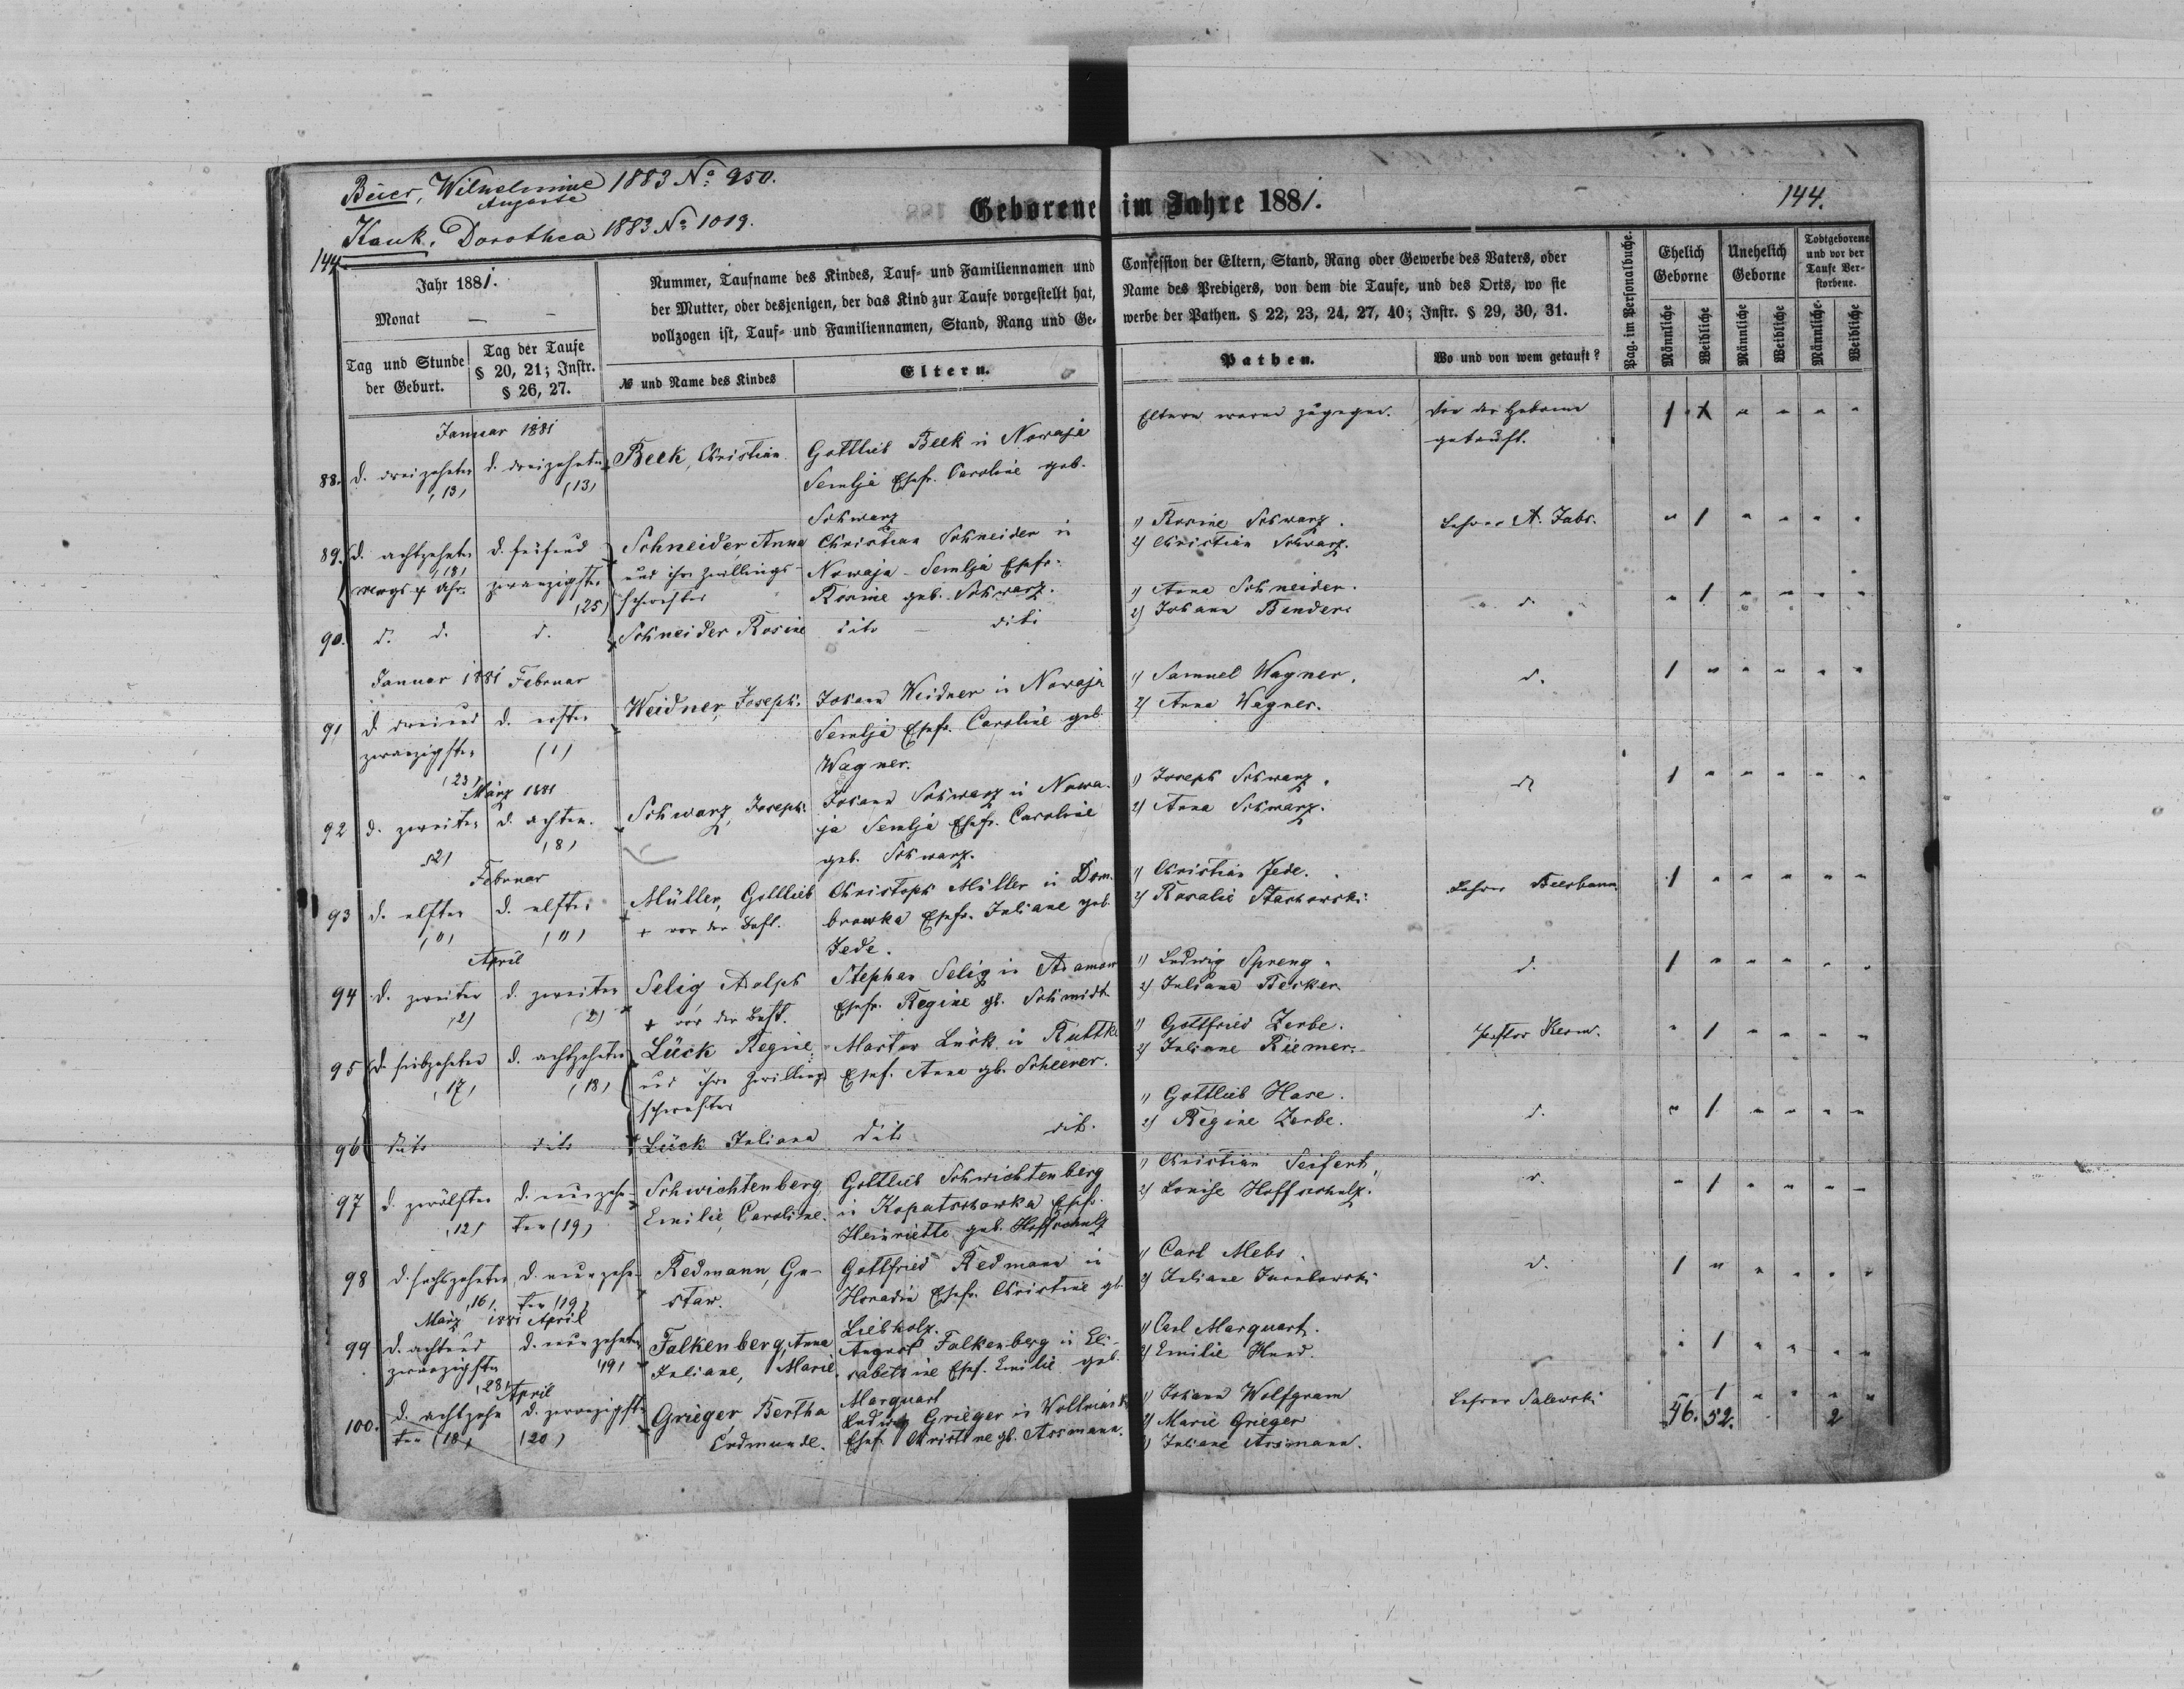 Beier, Wilhelmine 1883 No: 950.
Auguste
Kauk, Dorothea 1883 No: 1019.
Geborene im Jahre 1881.
144.
144.
Jahr 1881.
Monat — —
Tag und Stunde der Geburt.
Tag der Taufe § 20, 21; Instr. § 26, 27.
Nummer, Taufname des Kindes, Tauf- und Familiennamen und
der Mutter, oder desjenigen, der das Kind zur Taufe vorgestellt hat,
vollzogen ist, Tauf- und Familiennamen, Stand, Rang und Ge-
№ und Name des Kindes
Eltern.
Confession der Eltern, Stand, Rang oder Gewerbe des Vaters, oder
Name des Predigers, von dem die Taufe, und des Orts, wo sie
werbe der Pathen. § 22, 23, 24, 27, 40; Instr. § 29, 30, 31.
Pathen.
Wo und von wem getauft?
Pag. im Personalbuche.
Ehelich Geborne
Unehelich Geborne
Todtgeborene und vor der Taufe Verstorbene.
Männliche
Weibliche
Männliche
Weibliche
Männliche
Weibliche
Januar 1881
88. d. dreizehnten d. dreizehnten Beek, Christian. Gottlieb Beek in Nowaja Eltern waren zugegen. Von der Hebamme 1
(13) (13) Semlja Ehefr. Caroline geb. getauft.
Schwarz
89. d. achtzehnten d. fünfund Schneider, Anna Christian Schneider in 1) Rosine Schwarz. Lehrer A. Jabs. 1
(18) morgs 4 Uhr. zwanzigsten und ihre Zwillings- Nowaja-Semlja Ehefr. 2) Christian Schwarz.
(25) schwester Rosine geb. Schwarz.
90. d. d. d. Schneider Rosine dito — dito 1) Anna Schneider. d. 1
2) Johann Bender.
Januar 1881 Februar
91 d. dreiund d. ersten Weidner, Joseph. Johann Weidner in Nowaja 1) Samuel Wagner. d. 1
zwanzigsten (1) Semlja Ehefr. Caroline geb. 2) Anna Wagner.
(23) Wagner.
März 1881
92 d. zweiten d. achten. Schwarz, Joseph. Johann Schwarz in Nowa- 1) Joseph Schwarz. d. 1
(2) (8) ja Semlja Ehefr. Caroline 2) Anna Schwarz.
geb. Schwarz.
Februar
93 d. elften d. elften Müller, Gottlieb Christoph Müller in Dom- 1) Christian Jede. Lehrer Beerbaum 1
(11) (11) + vor der Best. browka Ehefr. Juliane geb. 2) Rosalie Stachowski.
Jede.
April
94 d. zweiten d. zweiten Selig Adolph Stephan Selig in Adamow 1) Ludwig Spreng. d. 1
(2) (2) + vor der Best. Ehefr. Regine gb. Schmidt 2) Juliana Becker.
95 d. siebzehnten d. achtzehnten Lück Regine Martin Lück in Ruttke 1) Gottfried Zerbe. Pastor Kerm. 1
(17) (18) und ihre Zwillings Ehefr. Anna gb. Scheerer. 2) Juliane Riemer.
schwester
96 dito dito Lück Juliana dito dito. 1) Gottlieb Hase. d. 1
2) Regine Zerbe.
97 d. zwölften d. neunzehn- Schwichtenberg, Gottlieb Schwichtenberg 1) Christian Seifert. d. 1
(12) ten (19) Emilie, Caroline. in Kopatschowka Ehefr. 2) Louise Hoffschulz.
Heinriette geb. Hoffschulz
98 d. sechszehnten d. neunzehn- Redmann, Gu- Gottfried Redmann in 1) Carl Mebs. d. 1
(16) ten (19) staw. Horadin Ehefr. Christine gb. 2) Juliane
Liebholz.
März 1881 April
99 d. achtund d. neunzehnten Falkenberg, Anna August Falkenberg in Eli- 1) Carl Marquart. 1
zwanzigsten (19) Juliane, Marie. sabethine Ehef. Emilie geb. 2) Emilie
(28) Marquart
April
100. d. achtzehn d. zwanzigst. Grieger Bertha Ludwig Grieger in 1) Johann Wolfgram Lehrer Salewski 1
ten (18) (20) Erdmunde. Ehef. Christine gb. Assmann. 2) Marie Grieger 46. 52. 2
3) Juliane Assmann.